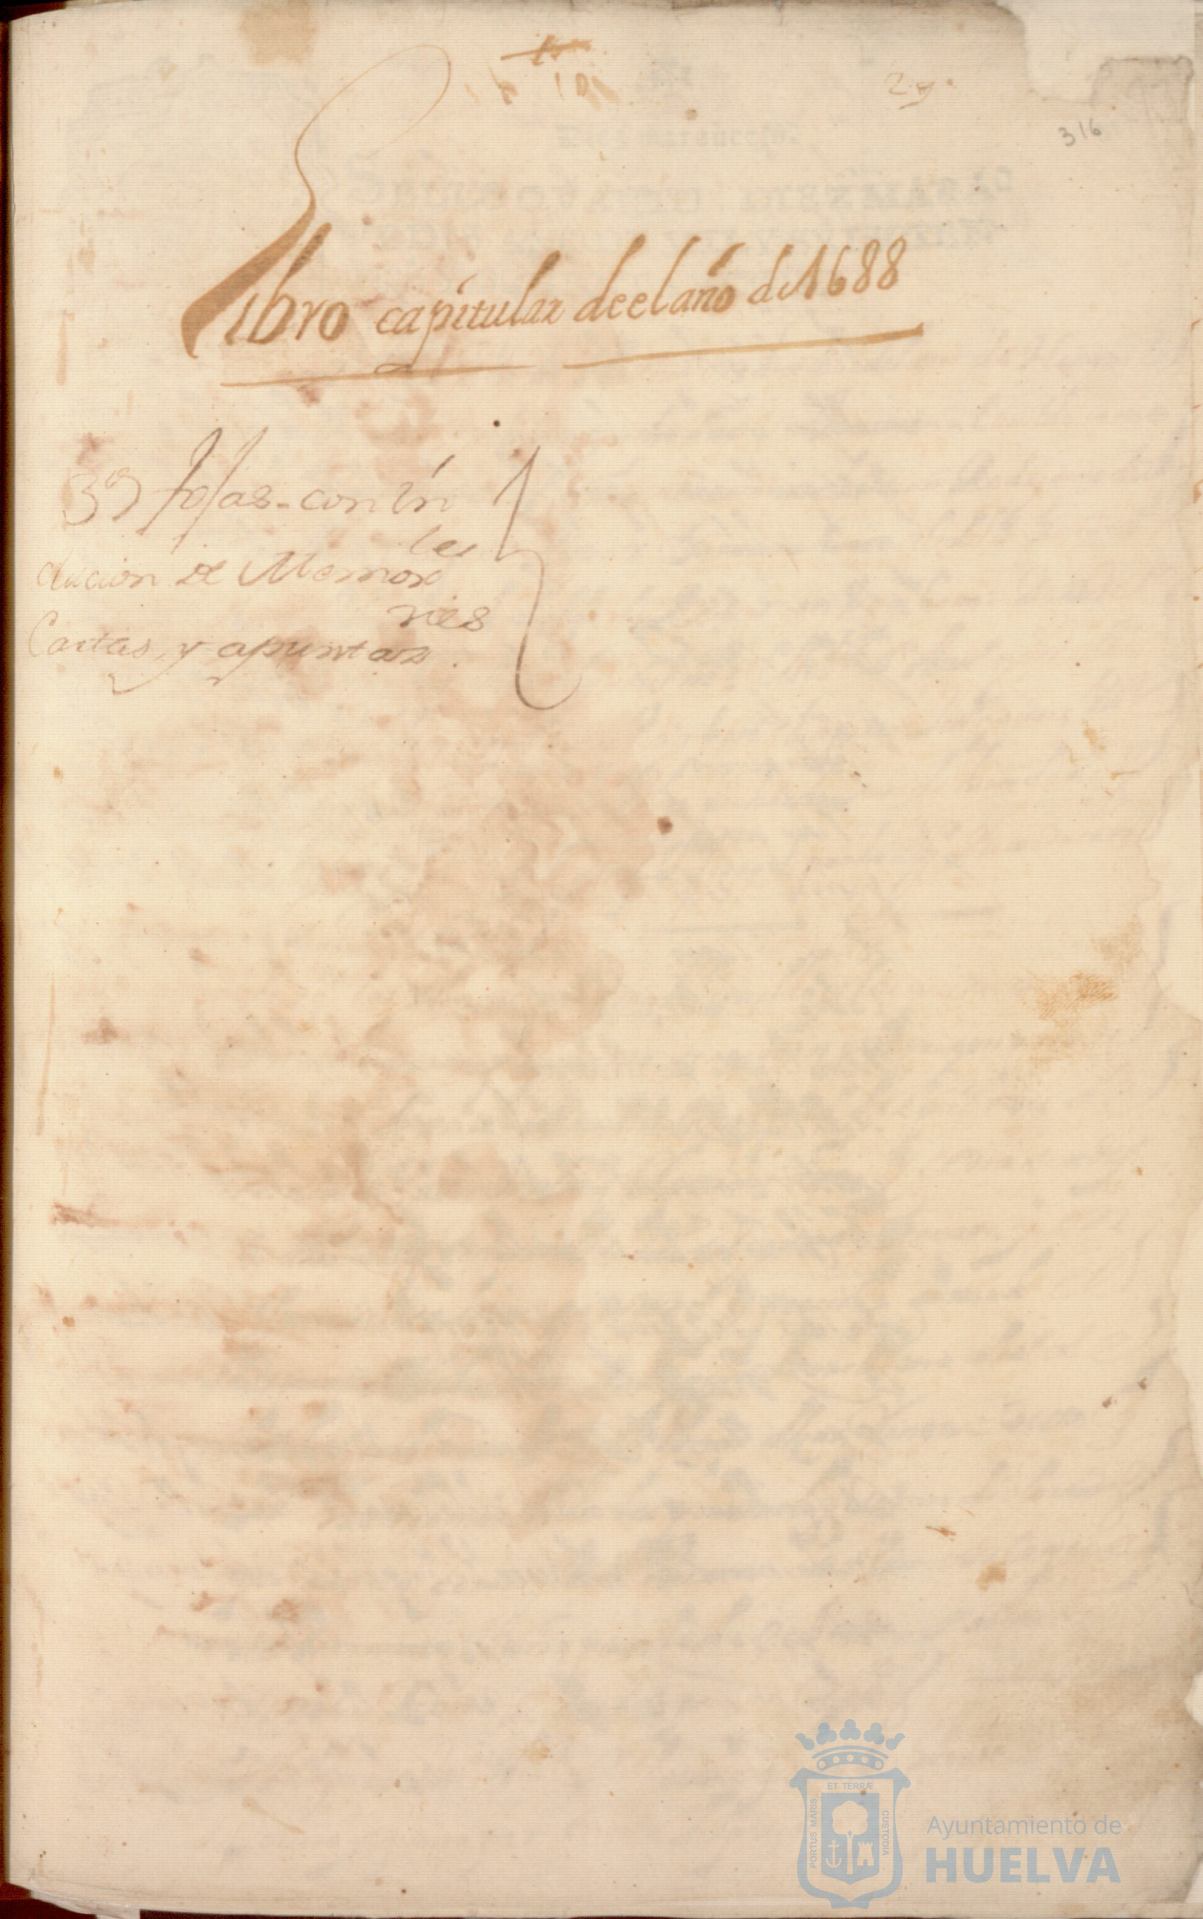 29
316
Libro capitular de el año de 1688
39 fojas - con in
clucion de Memoria
les
Cartas, y apuntaz
nes
ET TERRÆ
PORTUS MARIS
CUSTODIA
Ayuntamiento de
HUELVA